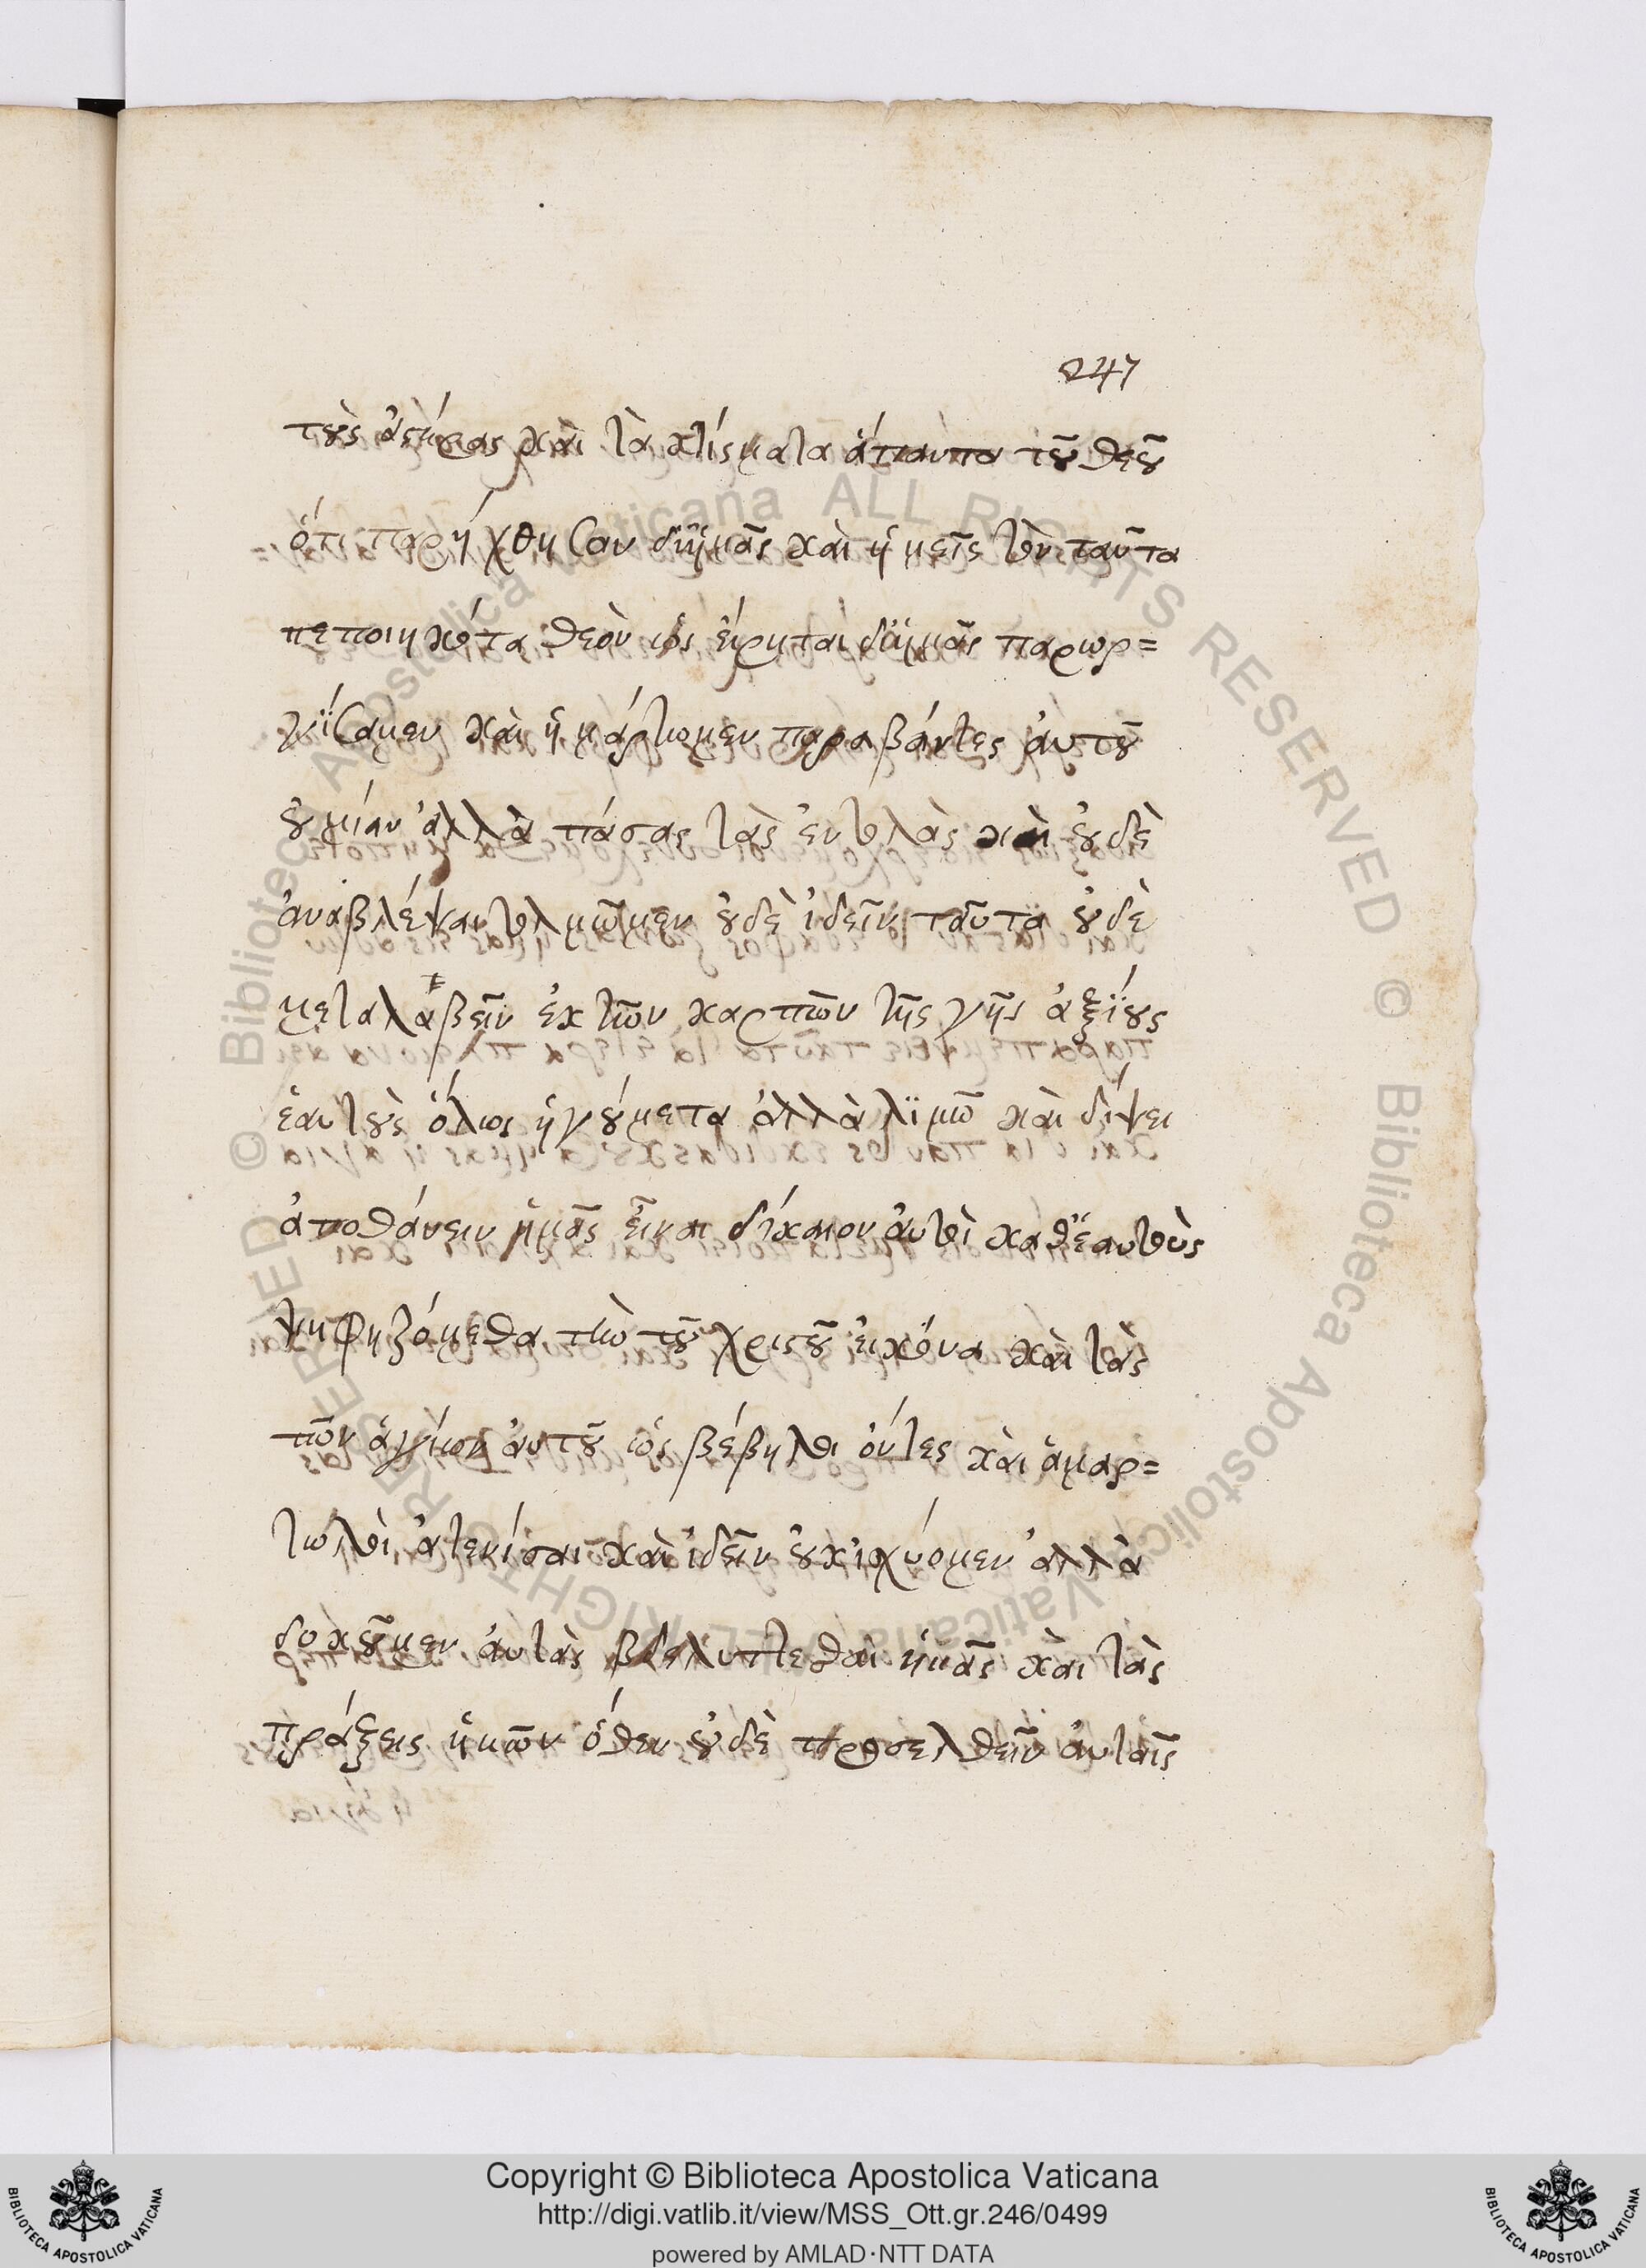 247
τοὺς ἀστέρας καὶ τὰ κτίσματα ἅπαντα τοῦ θεοῦ
ὅτι παρήχθησαν δι' ἡμᾶς καὶ ἡμεῖς τὸν ταῦτα
πεποιηκότα θεὸν ὡς εἴρηται δι' ἡμᾶς παρωρ=
γΐσαμεν καὶ ἡμάρτωμεν παραβάντες ἀυτοῦ
οὐ μίαν ἀλλὰ πάσας τὰς ἐντολὰς καὶ οὐδὲ
ἀναβλέψαι τολμῶμεν οὐδὲ ἰδεῖν ταῦτα οὐδὲ
μεταλαβεῖν ἐκ τῶν καρπῶν τῆς γῆς ἀξΐους
ἑαυτοὺς ὅλως ἡγούμετα ἀλλὰ λϊμῶ καὶ δίψει
ἀποθάνειν ἡμᾶς εἶναι δίκαιον ἀυτοὶ καθ' ἑαυτοὺς
ψηφηζόμεθα τὴν τοῦ χριστοῦ εἰκόνα καὶ τὰς
τῶν ἁγίων ἀυτοῦ ὡς βέβηλοι ὄντες καὶ ἁμαρ=
τωλοὶ ἀτενίσαι καὶ ἰδεῖν οὐκ ἰσχύομεν ἀλλὰ
δοκοῦμεν ἀυτὰς βδελυπτεσθαι ἡμᾶς καὶ τὰς
πράξεις ἡμῶν ὅθεν οὐδὲ προσελθεῖν ἀυταῖς
© Biblioteca Apostolica Vaticana ALL RIGHTS RESERVED
© Biblioteca Apostolica Vaticana ALL RIGHTS RESERVED
Copyright © Biblioteca Apostolica Vaticana
http://digi.vatlib.it/view/MSS_Ott.gr.246/0499
powered by AMLAD·NTT DATA
BIBLIOTECA APOSTOLICA VATICANA
BIBLIOTECA APOSTOLICA VATICANA